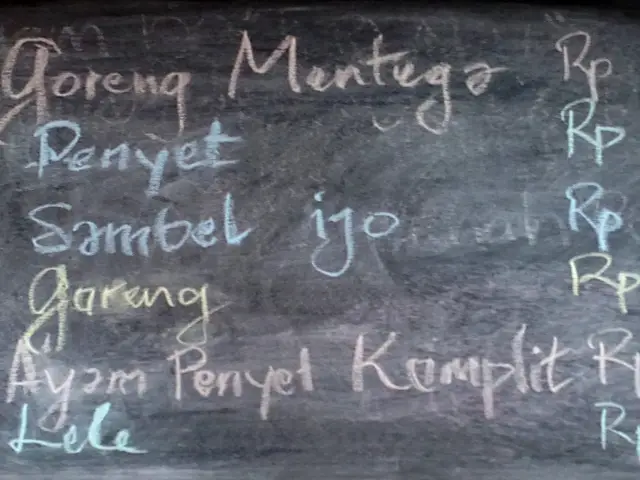 Goreng Mentega Rp
Penyet Rp
Sambel ijo Rp
Goreng Rp
Ayam Penyet Komplit Rp
Lele Rp